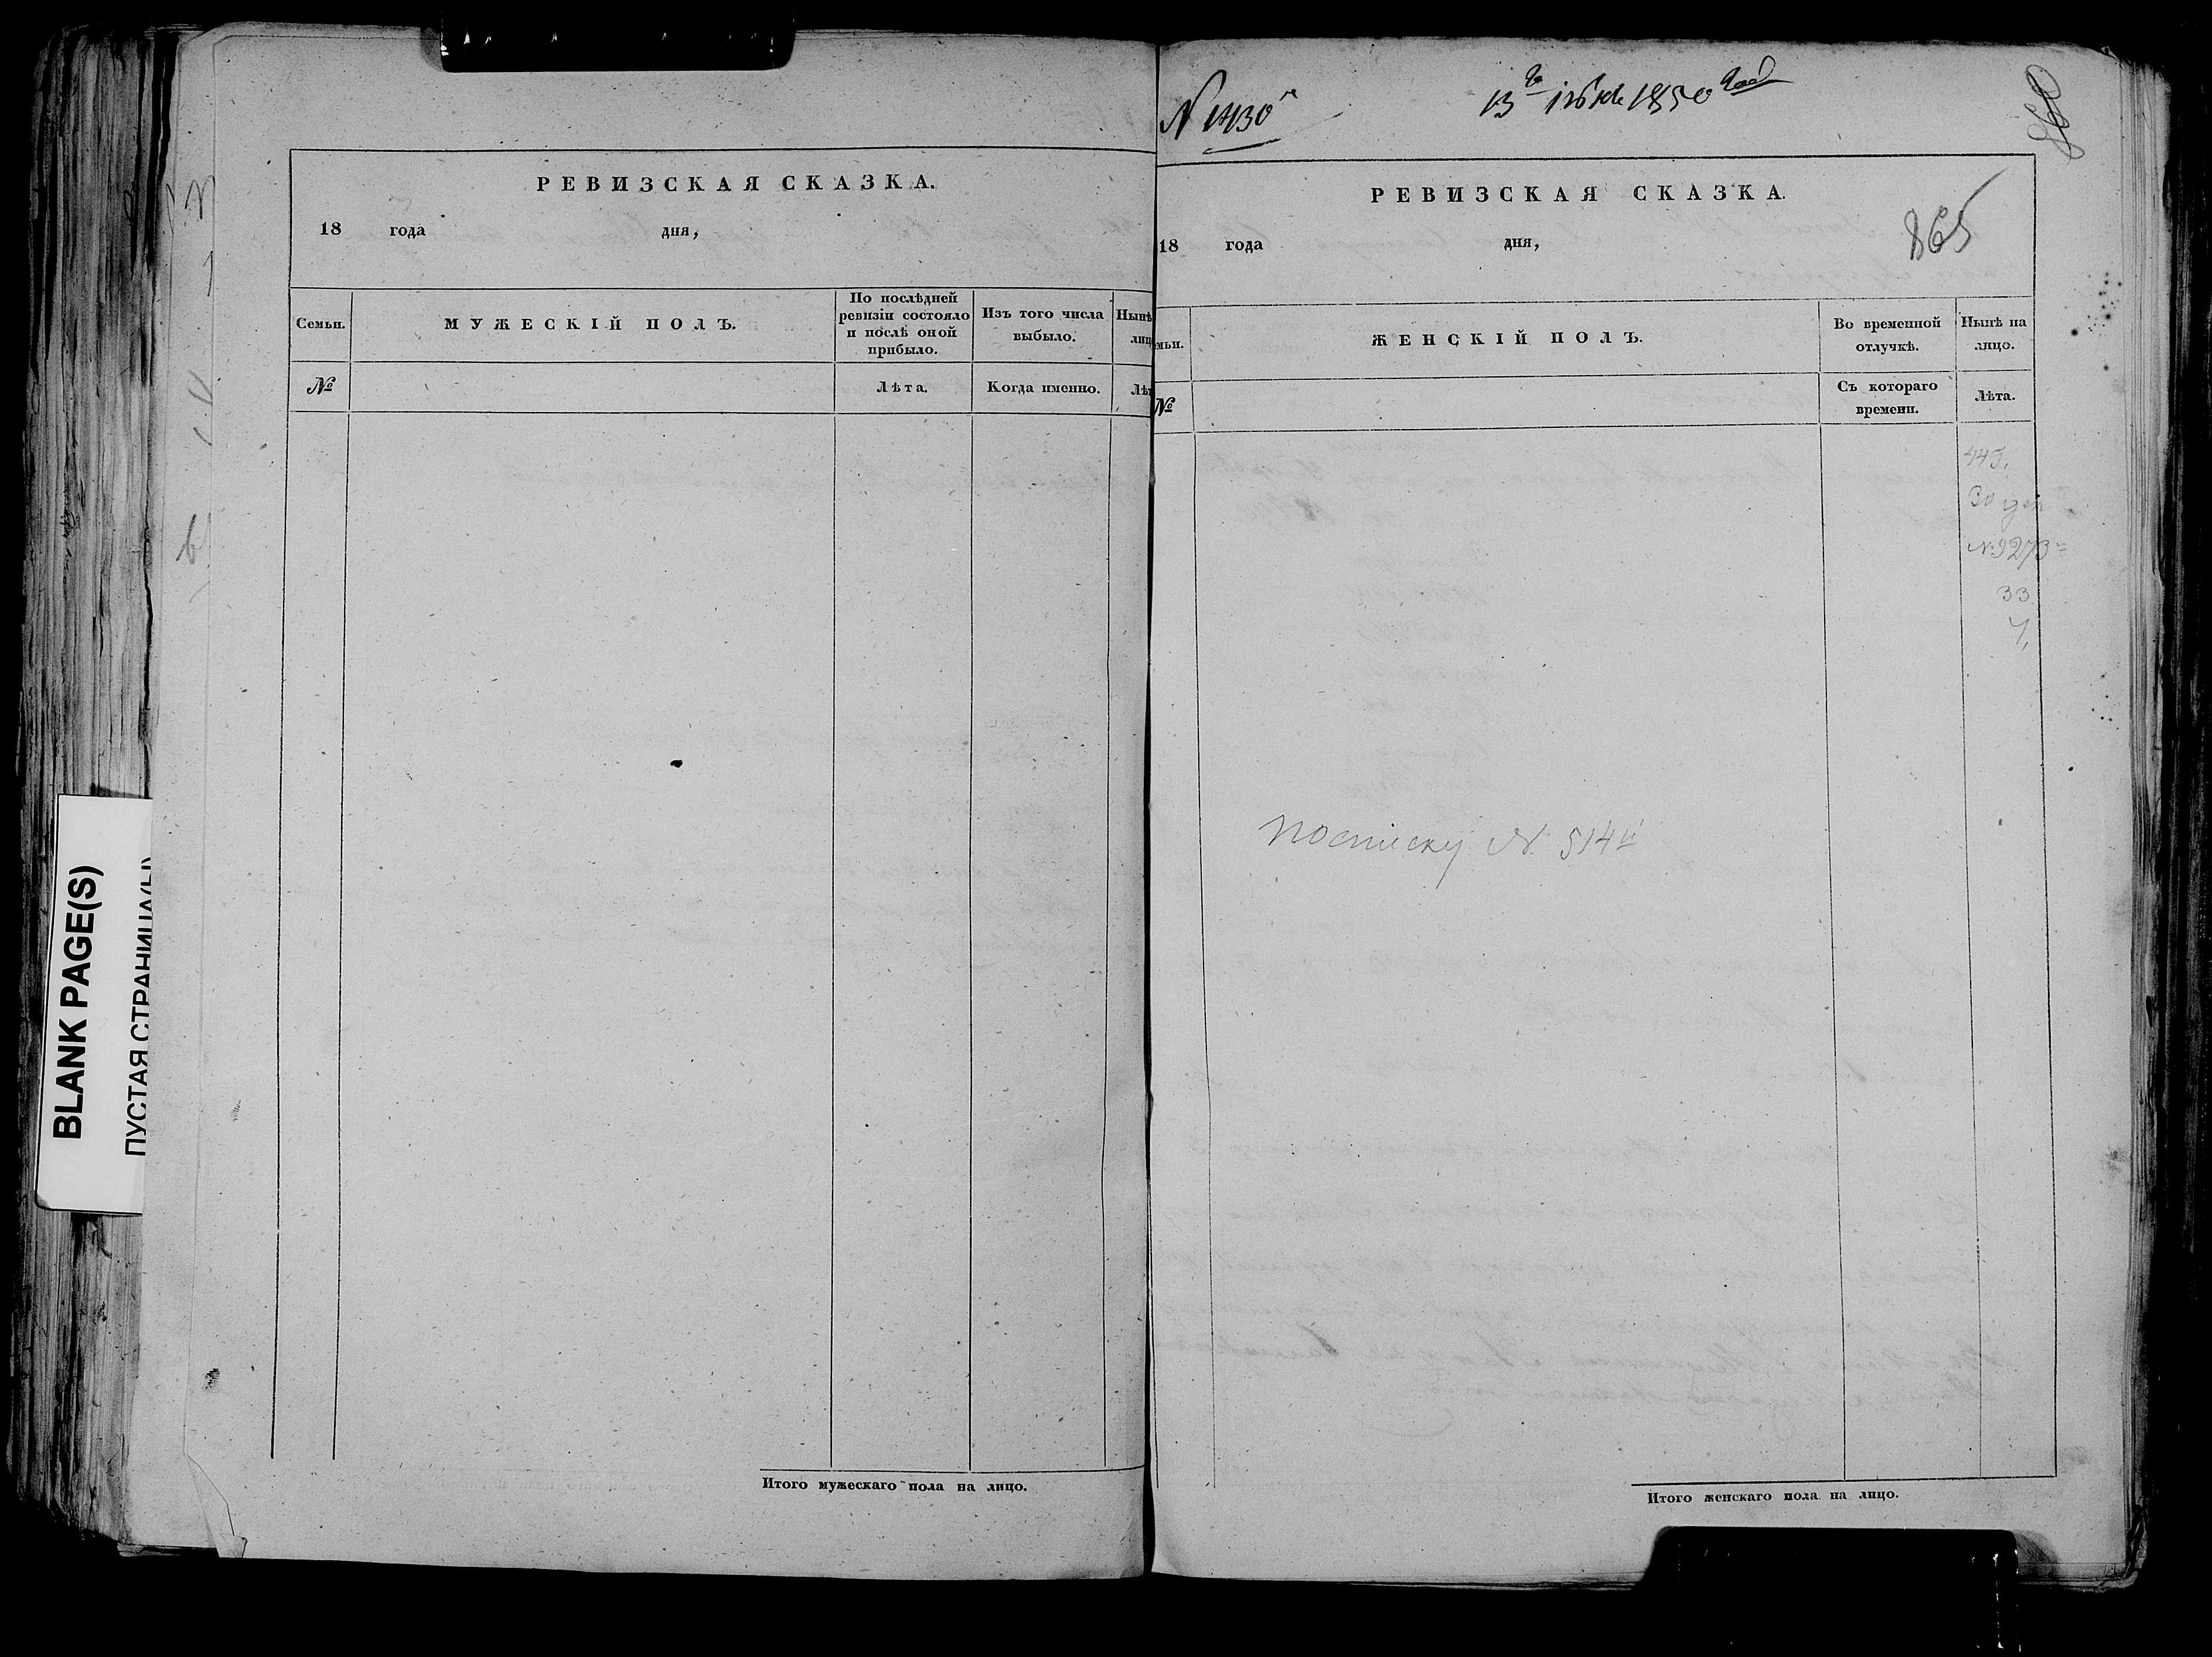 РЕВИЗСКАЯ СКАЗКА.
18 года дня,
Семьи.
МУЖЕСКІЙ ПОЛЪ.
По послѣдней
ревизіи состояло
и послѣ оной
прибыло.
Изъ того числа
выбыло.
Нынѣ
лиц
№
Лѣта.
Когда именно.
Лѣт
Итого мужескаго пола на лицо.
BLANK PAGE(S)
ПУСТАЯ СТРАНИЦА(Ы)
N 1430
13 1850
РЕВИЗСКАЯ СКАЗКА.
865
18 года дня,
мьи.
ЖЕНСКІЙ ПОЛЪ.
Во временной
отлучкѣ.
Нынѣ на
лицо.
№
Съ котораго
времени.
Лѣта.
445.
30
№9273
33
4,
посписку N. 514
Итого женскаго пола на лицо.